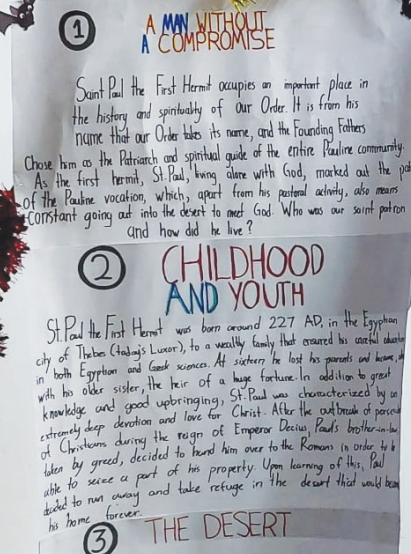 1
A MAN WITHOUT
A COMPROMISE
Saint Paul the First Hermit occupies an important place in
the history and spirituality of our Order. It is from his
name that our Order takes its name, and the Founding Fathers
Chose him as the Patriarch and spiritual guide of the entire Pauline community.
As the first hermit, St. Paul, living alone with God, marked out the
of the Pauline vocation, which, apart from his pastoral activity, also means
constant going out into the desert to meet God. Who was our saint patron
and how did he live?
2
CHILDHOOD
AND YOUTH
St. Paul the First Hermit was born around 227 AD, in the Egyptian
city of Thebes (today's Luxor), to a wealthy family that ensured his careful education
in both Egyptian and Greek sciences. At sixteen he lost his parents and became,
with his older sister, the heir of a huge fortune. In addition to great
knowledge and good upbringing, St. Paul was characterized by an
extremely deep devotion and love for Christ. After the outbreak of
of Christians during the reign of Emperor Decius, Paul's brother-in-law
taken by greed, decided to hand him over to the Romans in order to be
able to seize a part of his property. Upon learning of this, Paul
decided to run away and take refuge in the desert that would
his home forever.
3
THE DESERT